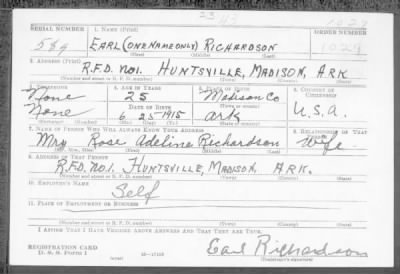 23 43 1029
SERIAL NUMBER 1. Name (Print) ORDER NUMBER
584 EARL (ONE NAME ONLY) RICHARDSON 1029
(First) (Middle) (Last)
2. Address (Print)
R.F.D. No1. HUNTSVILLE, MADISON, ARK
(Number and street or R. F. D. number) (Town) (County) (State)
3. Telephone 4. Age in Years 5. Place of Birth 6. Country of Citizenship
None 25 Madison Co
Date of Birth U.S.A.
None 6 25 1915 Ark
(Exchange) (Number) (Mo.) (Day) (Yr.) (State or country)
7. Name of Person Who Will Always Know Your Address 8. Relationship of That Person
Mrs Rose Adeline Richardson Wife
(Mr., Mrs., Miss) (First) (Middle) (Last)
9. Address of That Person
R.F.D. No.1. HUNTSVILLE, MADISON, ARK.
(Number and street or R. F. D. number) (Town) (County) (State)
10. Employer's Name
Self
11. Place of Employment or Business
(Number and street or R. F. D. number) (Town) (County) (State)
I Affirm That I Have Verified Above Answers and That They Are True.
REGISTRATION CARD
D. S. S. Form 1 (over) Earl Richardson
(Registrant's signature)